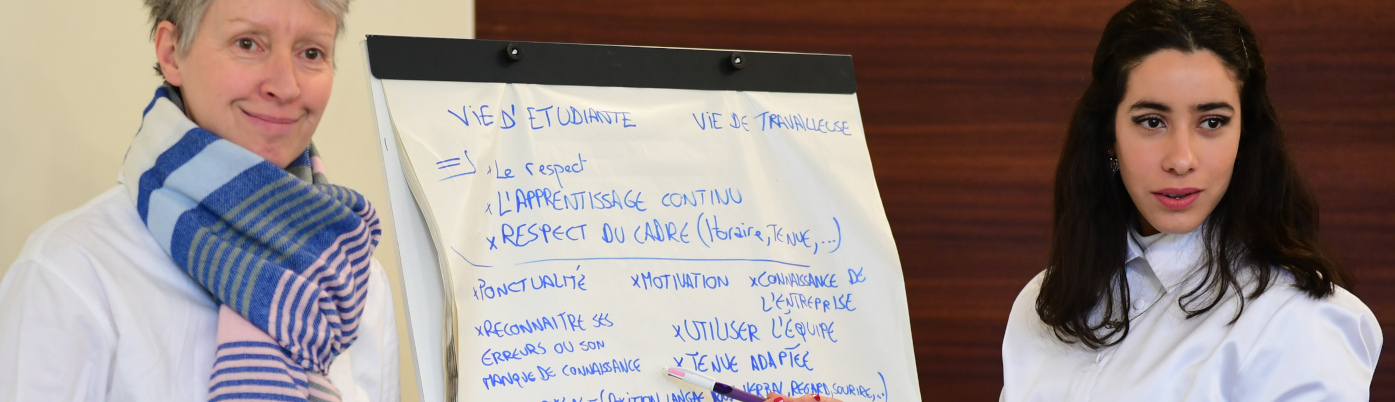 VIE D'ETUDIANTE VIE DE TRAVAILLEUSE
=> x Le respect
x L'APPRENTISSAGE CONTINU
x RESPECT DU CADRE (Horaire, TENUE, ...)
x PONCTUALITÉ x MOTIVATION x CONNAISSANCE DE
L'ENTREPRISE
x RECONNAITRE SES
ERREURS OU SON
MANQUE DE CONNAISSANCE
x UTILISER L'ÉQUIPE
x TENUE ADAPTÉE
LANGAGE VERBAL, REGARD, SOURIRE, ...)